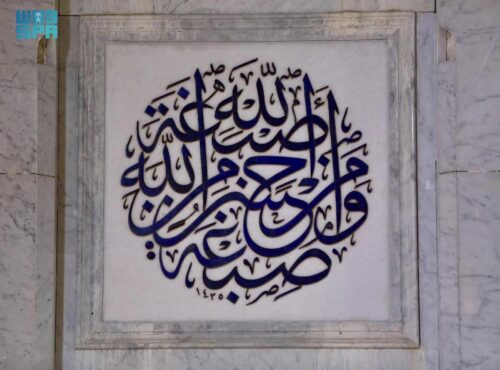 واس
SPA
صبغة الله
ومن أحسن من الله
صبغة
١٤٣٥